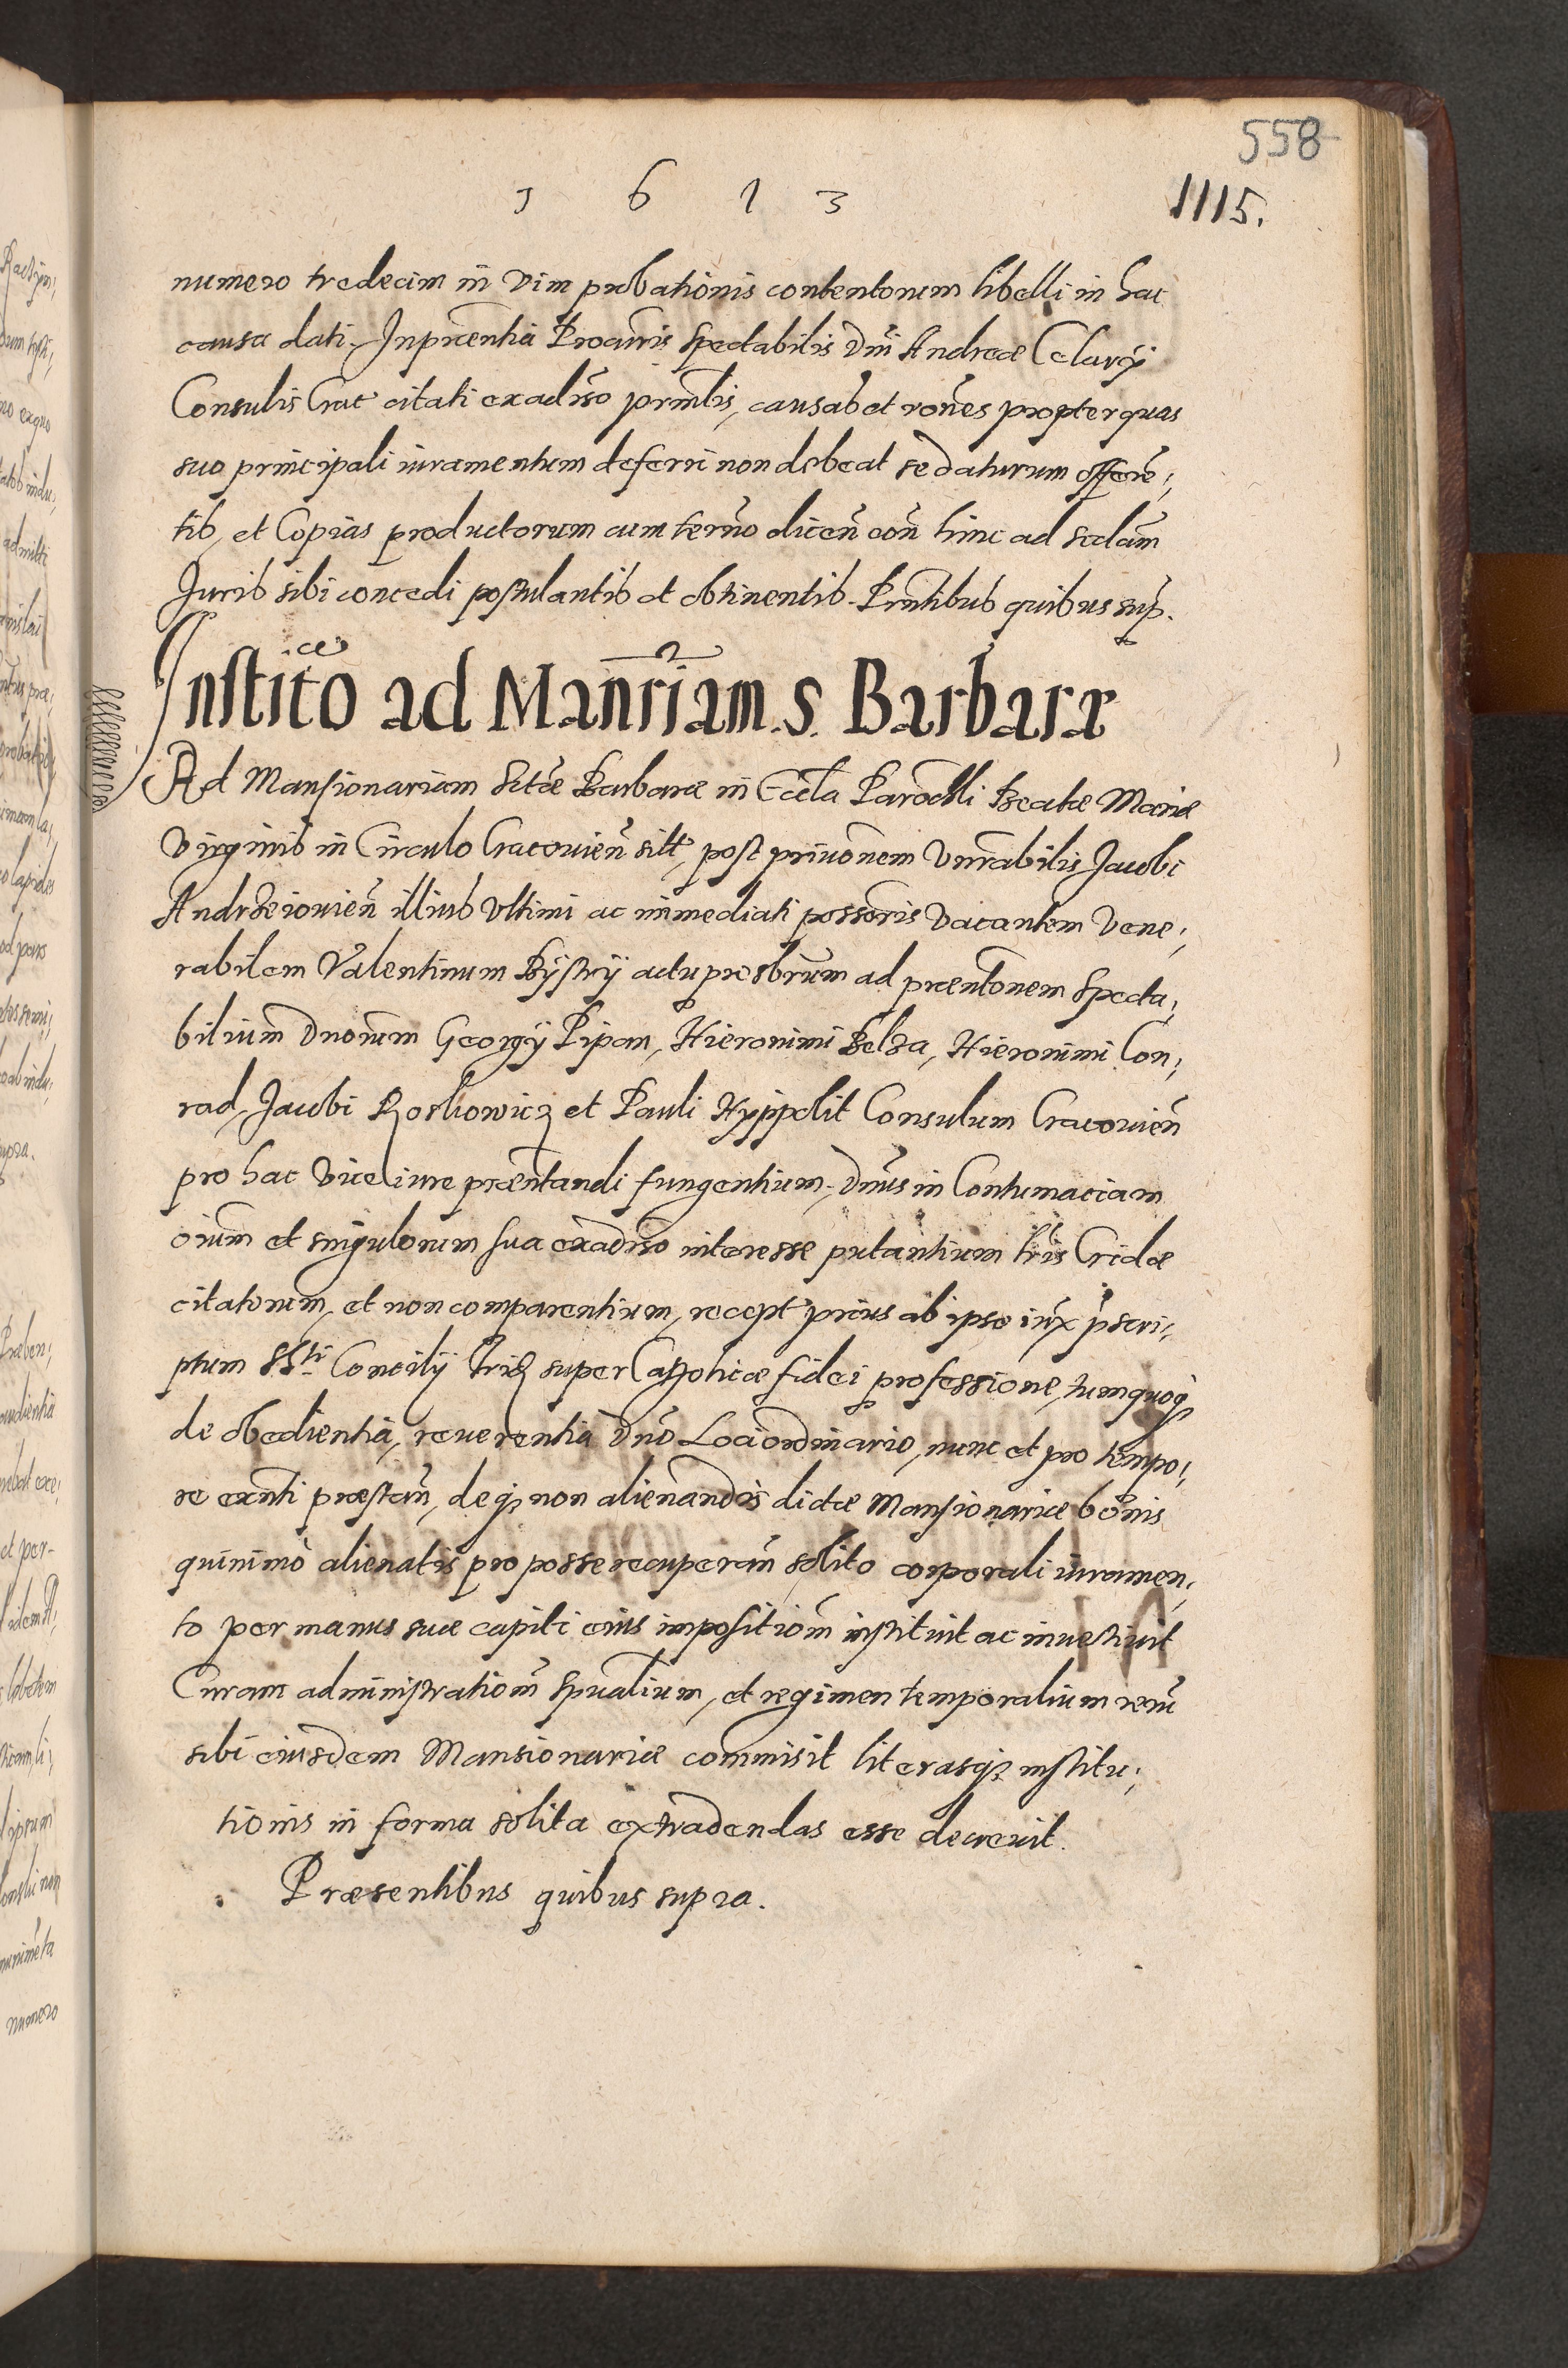 558
1 6 1 3
1115.
numero tredecim in vim probationis contentorum libelli in hac
causa dati. In praentia Procuris Spectabilis Dni Andreæ Celarÿ
Consulis Crac citati exadverso prinlis, causas et rones propter quas
suo principali iuramentum deferri non debeat se daturum offeren;
tis, et Copias productorum cum termo dicen con hinc ad secdam
Juris sibi concedi postulantis et obtinentis. Pntibus quibus sup.
Institõ ad Manriam S. Barbaræ
Ad Mansionariam Sctæ Barbaræ in Eccla Parochli Beatæ Mariæ
Virginis in Circulo Cracovien sitt, post privonem Vnrabilis Jacobi
Andrzeiovien illius Ultimi ac immediati possoris vacantem Vene;
rabilem Valentinum Bÿstrÿ actu presbrum ad præntonem Specta;
bilium Dnorum Georgÿ Pipan, Hieronimi Belza, Hieronimi Con;
rad, Jacobi Roskowicz et Pauli Hyppolit Consulum Cracovien
pro hac vice iure præntandi fungentium. Dnus in Contumaciam
oium et singulorum sua exadverso interesse putantium lris Cridæ
citatorum, et non comparentium, recept prius ab ipso iux pscri;
ptum SSti Concilÿ Trid super Catholicæ fidei professione, tumquoq
de obedientia, reverentia Dno Lociordinario, nunc et pro tempo;
re exnti præstan, deq non alienandis dictæ Mansionariæ bonis
quinimò alienatis pro posse recuperan solito corporali iuramen;
to per manus suæ capiti eius impositiom instituit ac investivit
Curam administrationem Spualium, et regimen temporalium reru
sibi eiusdem Mansionariæ commisit literasq institu;
tionis in forma solita extradendas esse decrevit.
Præsentibus quibus supra.